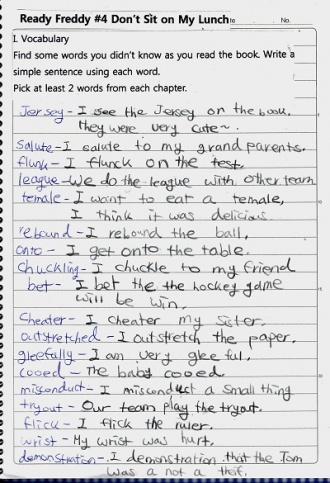 Ready Freddy #4 Don't Sit on My Lunch to No.
I. Vocabulary
Find some words you didn't know as you read the book. Write a
simple sentence using each word.
Pick at least 2 words from each chapter.
Jersey - I see the Jersey on the book.
They were very cute~.
Salute - I salute to my grand parents.
flunk - I flunck on the test.
league - We do the league with other team
temale - I want to eat a temale,
I think it was delicious.
rebound - I rebound the ball,
onto - I get onto the table.
Chuckling - I chuckle to my friend
bet - I bet the the hockey game
will be win.
Cheater - I cheater my Sister.
outstretched - I outstretch the paper.
gleefully - I am very glee ful,
cooed - The baby cooed.
misconduct - I misconduct a small thing
tryout - Our team play the tryout.
flick - I flick the ruler.
wrist - My wrist was hurt.
demonstration - I demonstration that the Tom
was a not a theif.